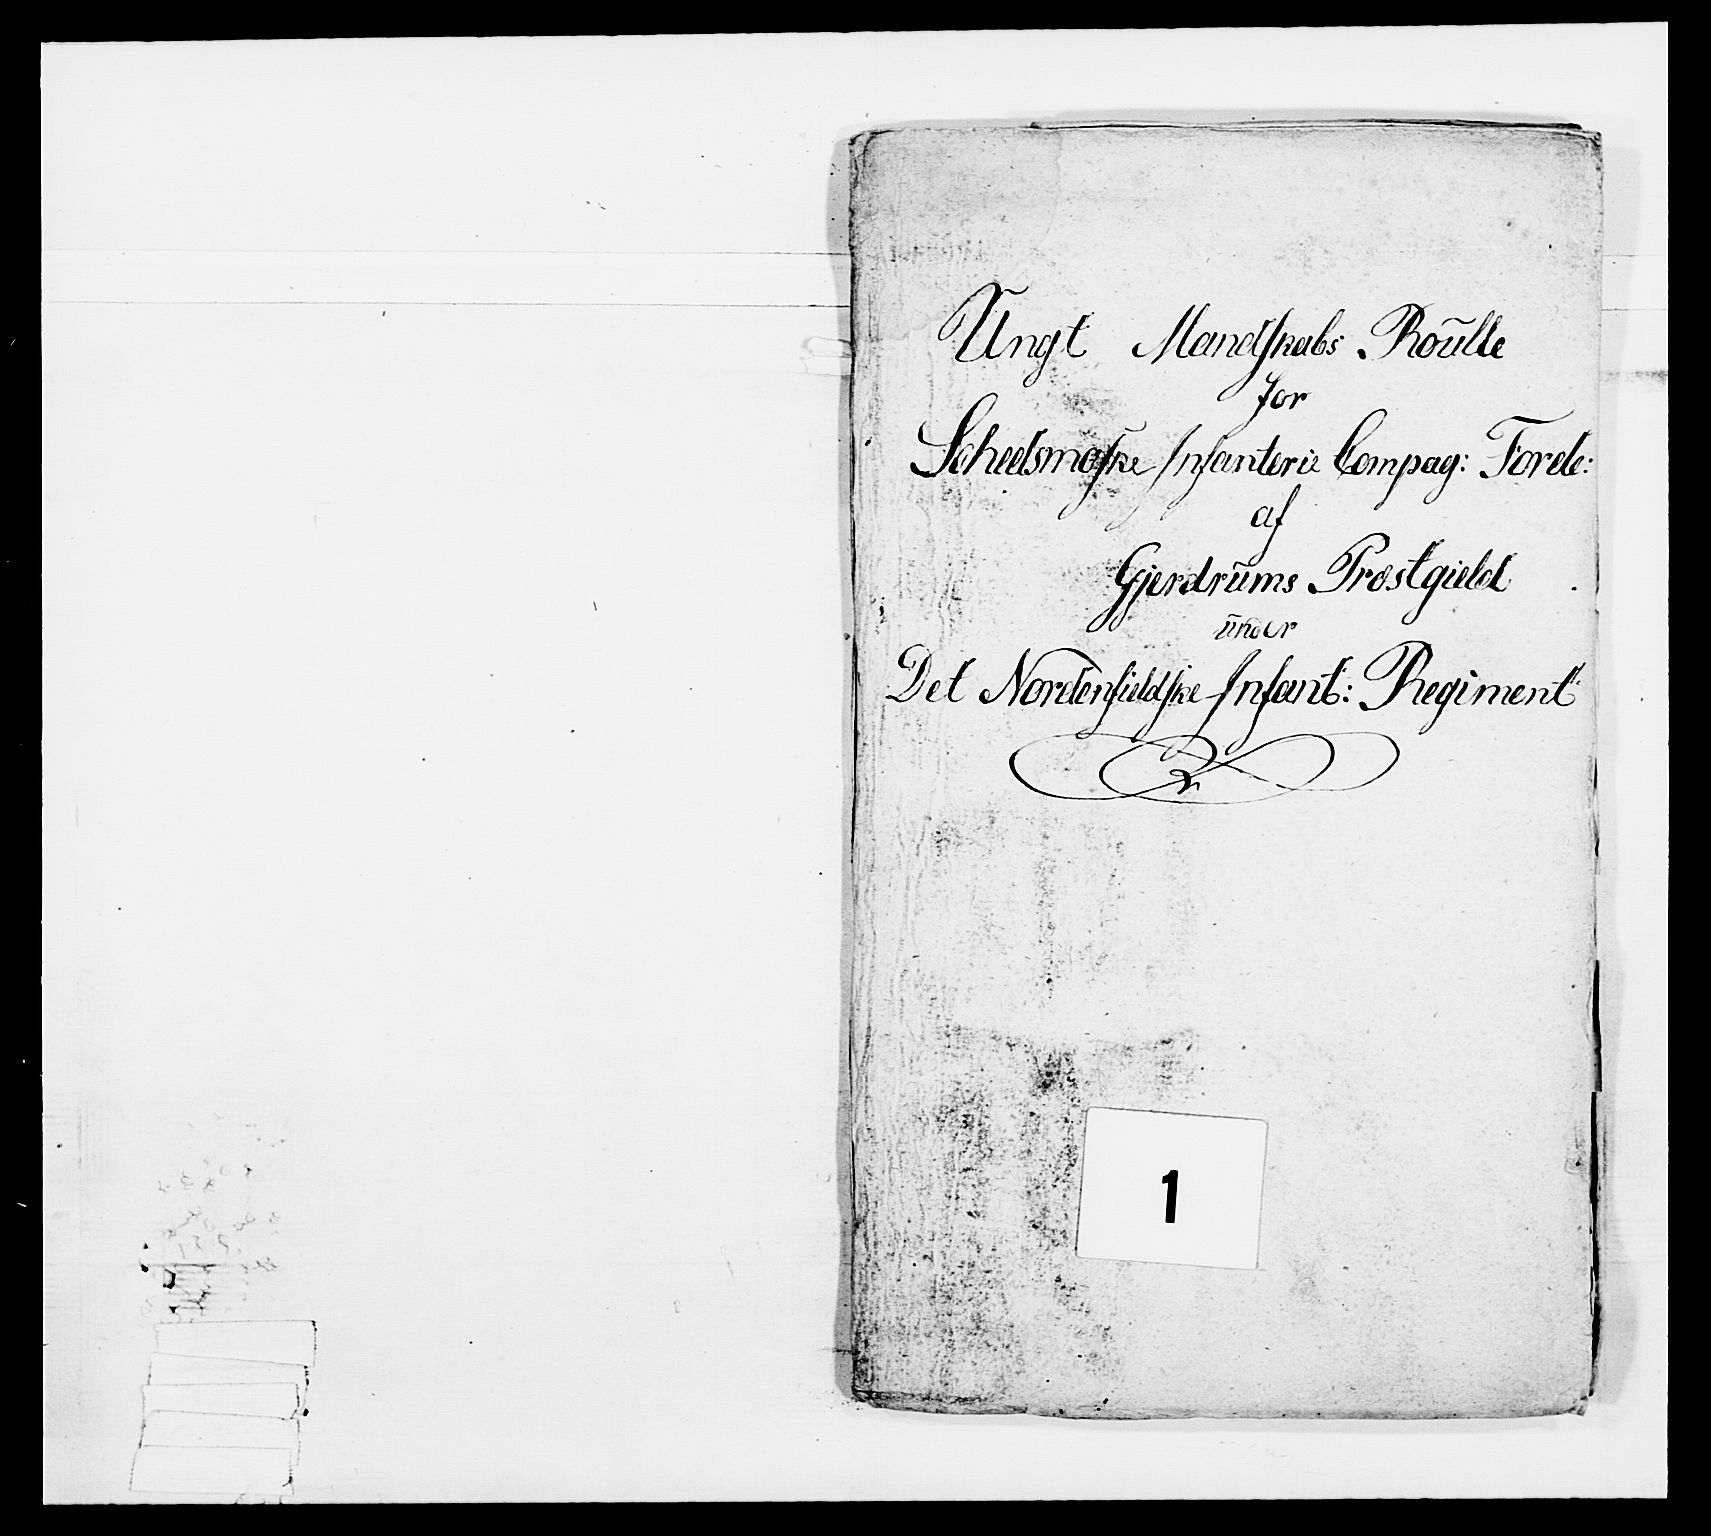 Ungt Mandskabs Roülle
for
Scheelsmoske Infanterie Compag: Forde:
af
Gjerdrüms Præstgield
ünder
Det Nordenfieldske Infant: Regiment
1